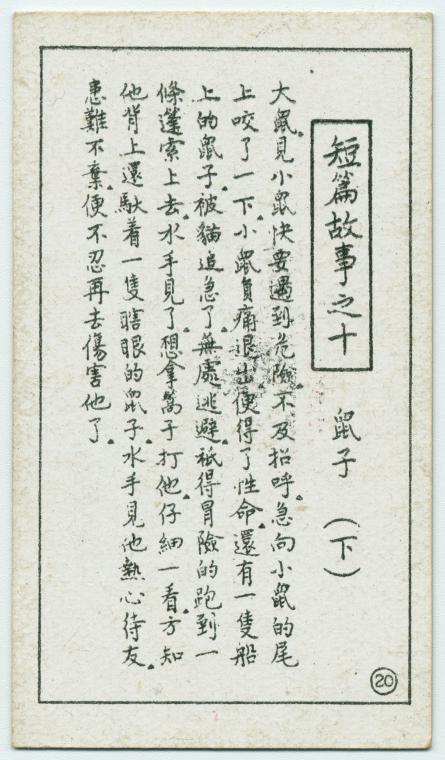 短篇故事之十
鼠子（下）
大鼠見小鼠快要遇到危險。不及招呼。急向小鼠的尾
上咬了一下。小鼠負痛退出。便得了性命。還有一隻船
上的鼠子。被貓追急了。無處逃避。祇得冒險的跑到一
條蓬索上去。水手見了。想拿篙子打他。仔細一看。方知
他背上還馱着一隻瞎眼的鼠子。水手見他熱心待友。
患難不棄。便不忍再去傷害他了。
20